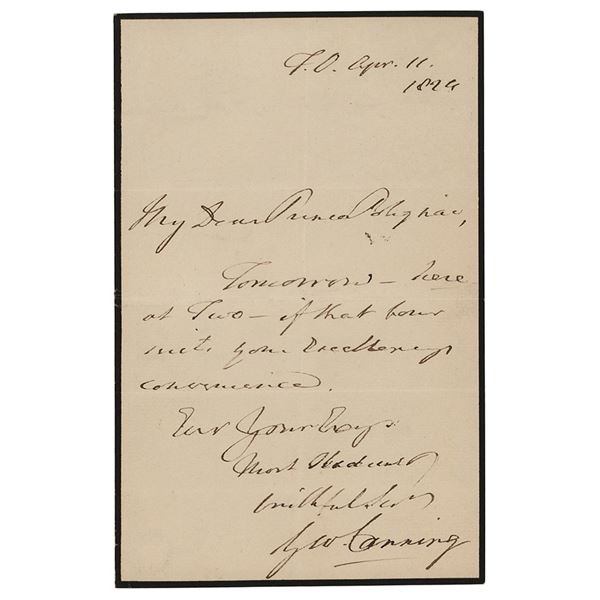 F.O. Apr. 11.
1824
My Dear Prince Polignac,
Tomorrow – here
at Two – if that hour
suits your Excellency's
convenience.
Ever Your Excys
Most
faithful Sert
Geo. Canning